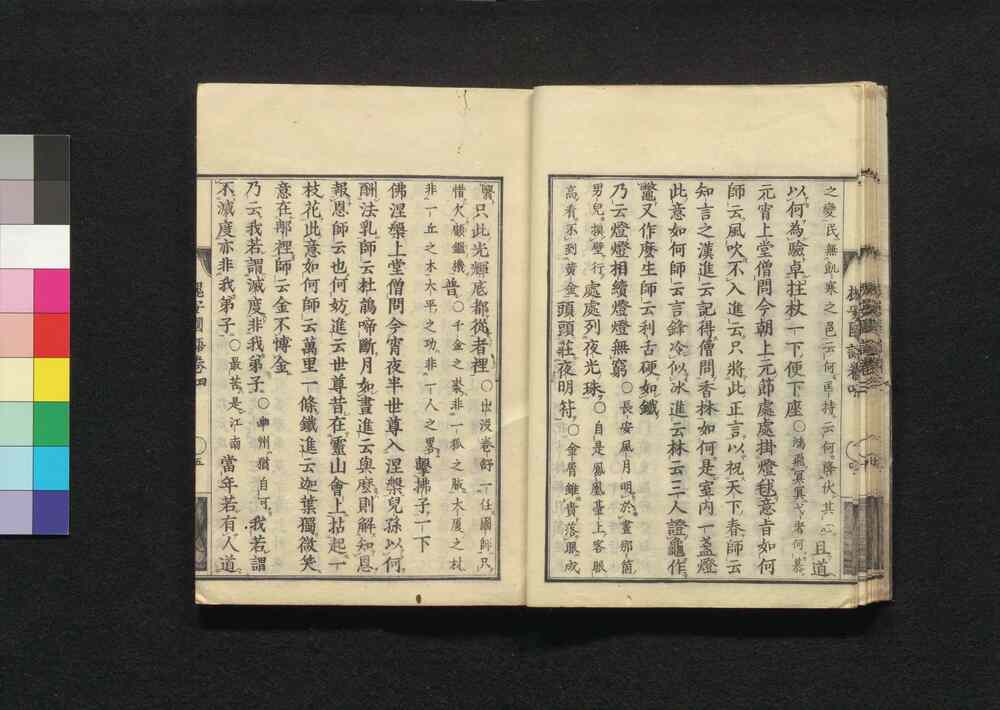 之變民無飢寒之邑云何匡持云何降伏其心且道
以何為驗卓拄杖一下便下座○鴻飛冥冥弋者何慕
元宵上堂僧問今朝上元節處處掛燈毬意旨如何
師云風吹不入進云只將此正言以祝天下春師云
知言之漢進云記得僧問香林如何是室内一盞燈
此意如何師云言鋒冷似冰進云林云三人證龜作
鼈又作麼生師云利舌硬如鐵
乃云燈燈相續燈燈無窮○長安風月明於晝那箇
男兒摸壁行處處列夜光珠○自是鳳凰臺上客眼
高看不到黃金頭頭莊夜明符○金屑雖貴落眼成
翳只此光輝底都從者裡○出沒卷舒一任國師只
惜火顧鑑
昔○千金之裘非一狐之腋大厦之材
非一丘之木太平之功非一人之畧擊拂子一下
佛涅槃上堂僧問今宵夜半世尊入涅槃兒孫以何
酬法乳師云杜鵑啼斷月如晝進云與麼則解知恩
報恩師云也何妨進云世尊昔在靈山會上拈起一
枝花此意如何師云萬里一條鐵進云迦葉獨微笑
意在那裡師云金不博金
乃云我若謂滅度非我弟子○幽州猶自可我若謂
不滅度亦非我弟子○最苦是江南當年若有人道
槐安國語卷四
槐安國語卷四
五